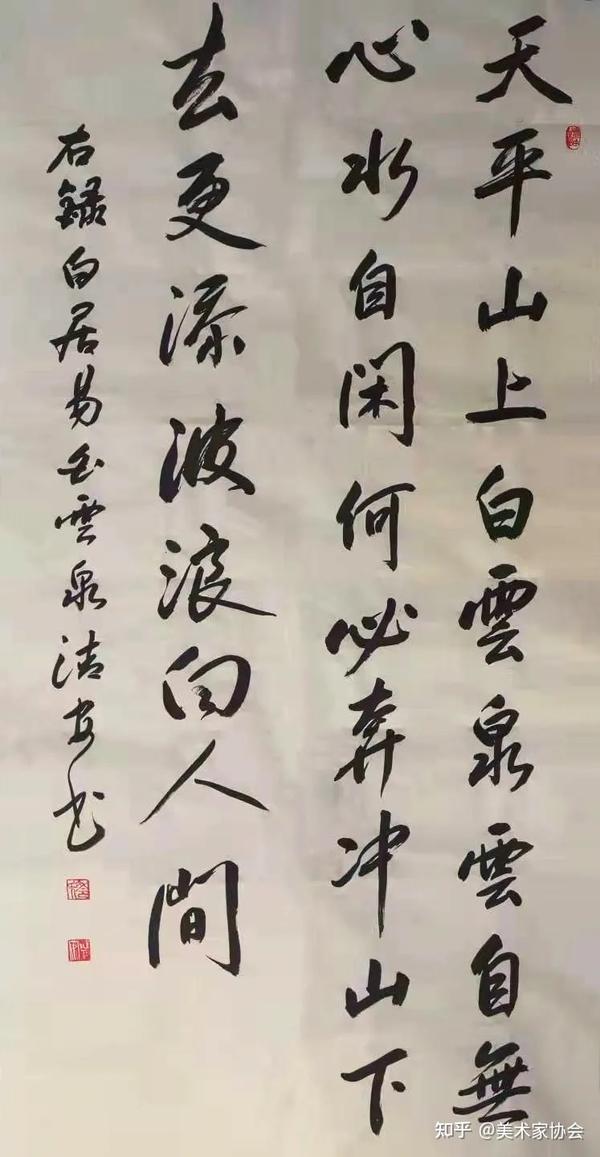 天平山上白雲泉雲自無
心水自閑何必奔冲山下
去更添波浪向人間
右録白居易白雲泉清安书
知乎 @美术家协会